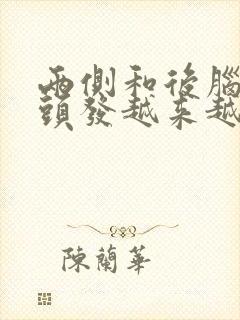 兩側和後腦
頭發越來越
陳蘭華